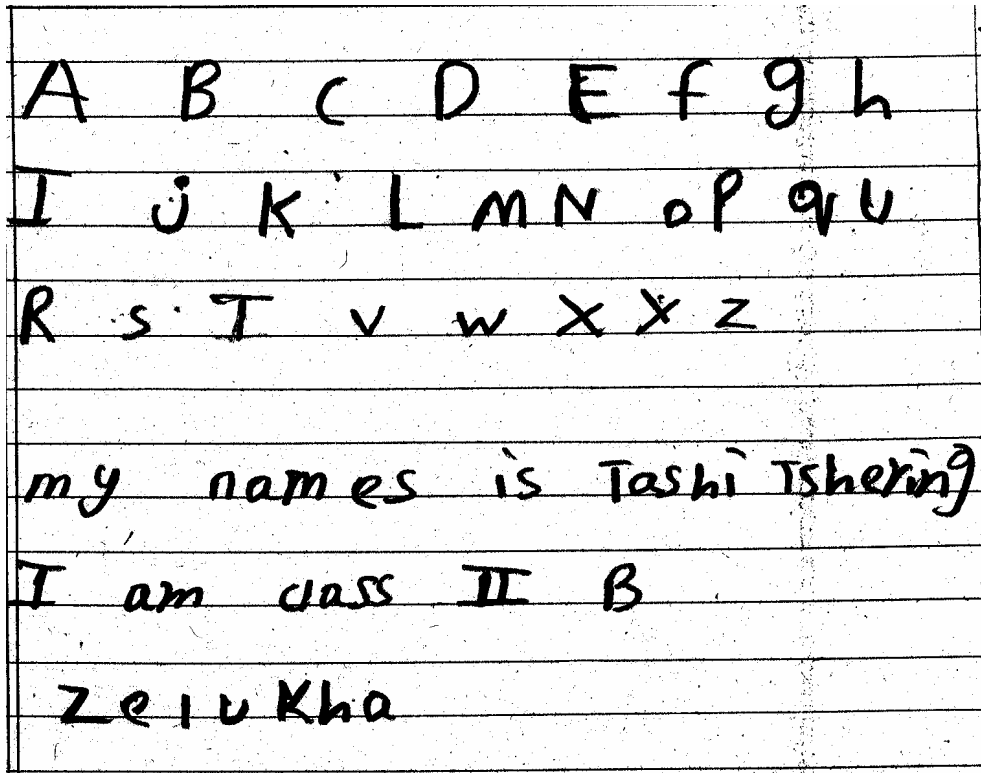 A B C D E f g h
I j K L m N o P q U
R s T v w X X Z
my names is Tashi Tshering
I am class II B
Zelukha